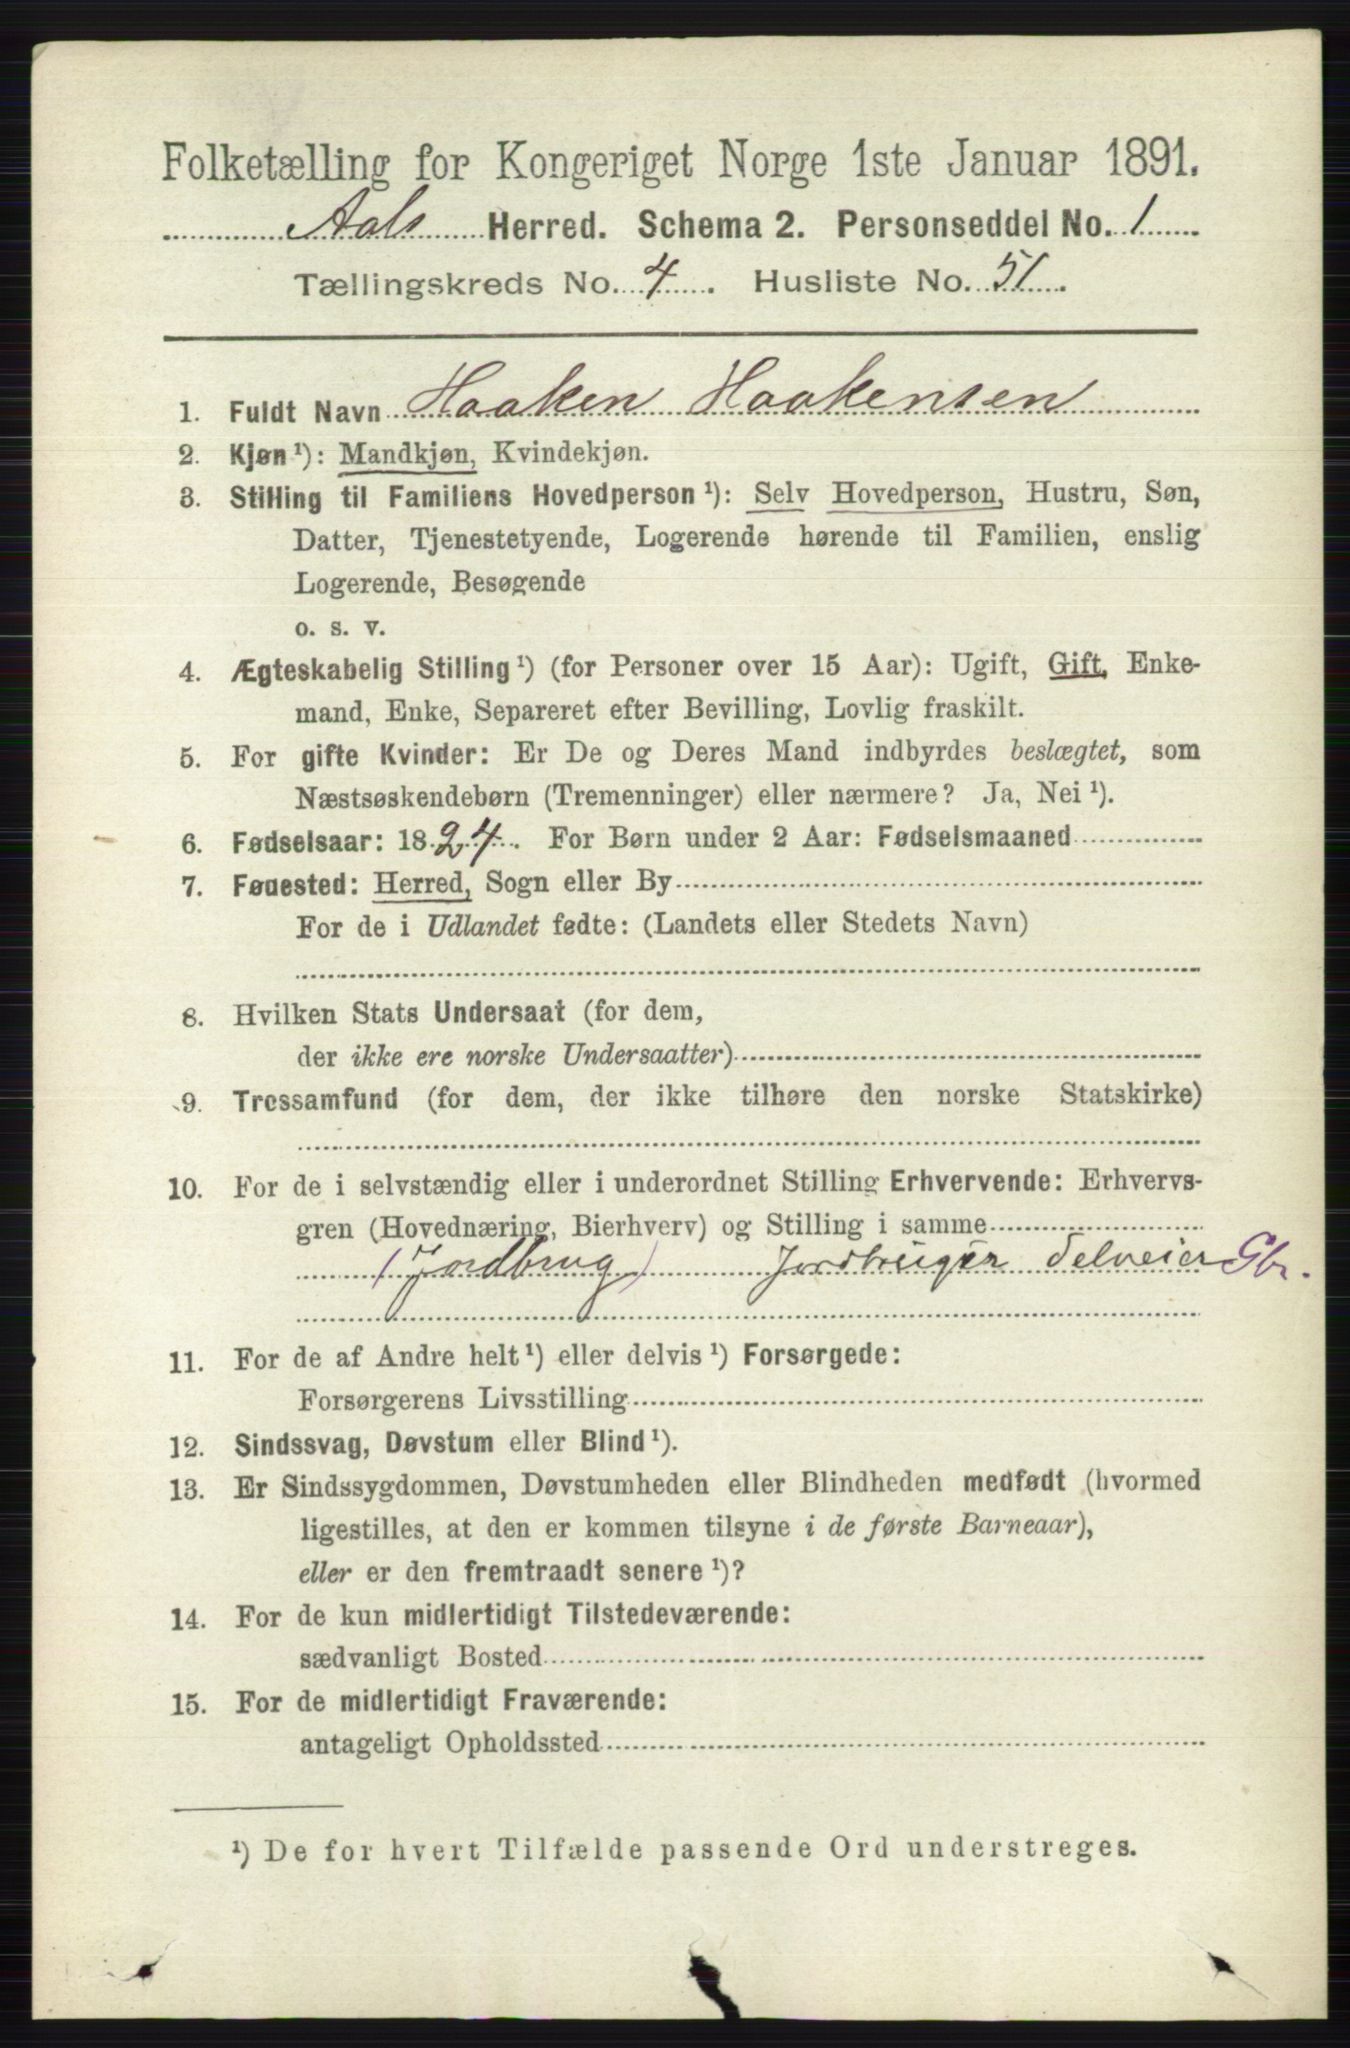 Folketælling for Kongeriget Norge 1ste Januar 1891.
Aals Herred. Schema 2. Personseddel No. 1
Tællingskreds No. 4. Husliste No. 51.
1. Fuldt Navn Haaken Haakensen
2. Kjøn ¹): Mandkjøn, Kvindekjøn.
3. Stilling til Familiens Hovedperson ¹): Selv Hovedperson, Hustru, Søn,
Datter, Tjenestetyende, Logerende hørende til Familien, enslig
Logerende, Besøgende
o. s. v.
4. Ægteskabelig Stilling ¹) (for Personer over 15 Aar): Ugift, Gift, Enke-
mand, Enke, Separeret efter Bevilling, Lovlig fraskilt.
5. For gifte Kvinder: Er De og Deres Mand indbyrdes beslægtet, som
Næstsøskendebørn (Tremenninger) eller nærmere? Ja, Nei ¹).
6. Fødselsaar: 1824. For Børn under 2 Aar: Fødselsmaaned
7. Føuested: Herred, Sogn eller By
For de i Udlandet fødte: (Landets eller Stedets Navn)
8. Hvilken Stats Undersaat (for dem,
der ikke ere norske Undersaatter)
9. Trossamfund (for dem, der ikke tilhøre den norske Statskirke)
10. For de i selvstændig eller i underordnet Stilling Erhvervende: Erhvervs-
gren (Hovednæring, Bierhverv) og Stilling i samme
(Jordbrug) Jordbruger Selveier Gbr.
11. For de af Andre helt ¹) eller delvis ¹) Forsørgede:
Forsørgerens Livsstilling
12. Sindssvag, Døvstum eller Blind ¹).
13. Er Sindssygdommen, Døvstumheden eller Blindheden medfødt (hvormed
ligestilles, at den er kommen tilsyne i de første Barneaar),
eller er den fremtraadt senere ¹)?
14. For de kun midlertidigt Tilstedeværende:
sædvanligt Bosted
15. For de midlertidigt Fraværende:
antageligt Opholdssted
¹) De for hvert Tilfælde passende Ord understreges.